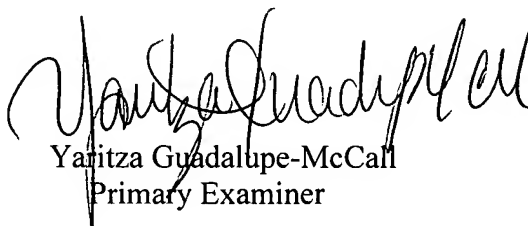 Yaritza Guadalupe McCall
Yaritza Guadalupe-McCall
Primary Examiner